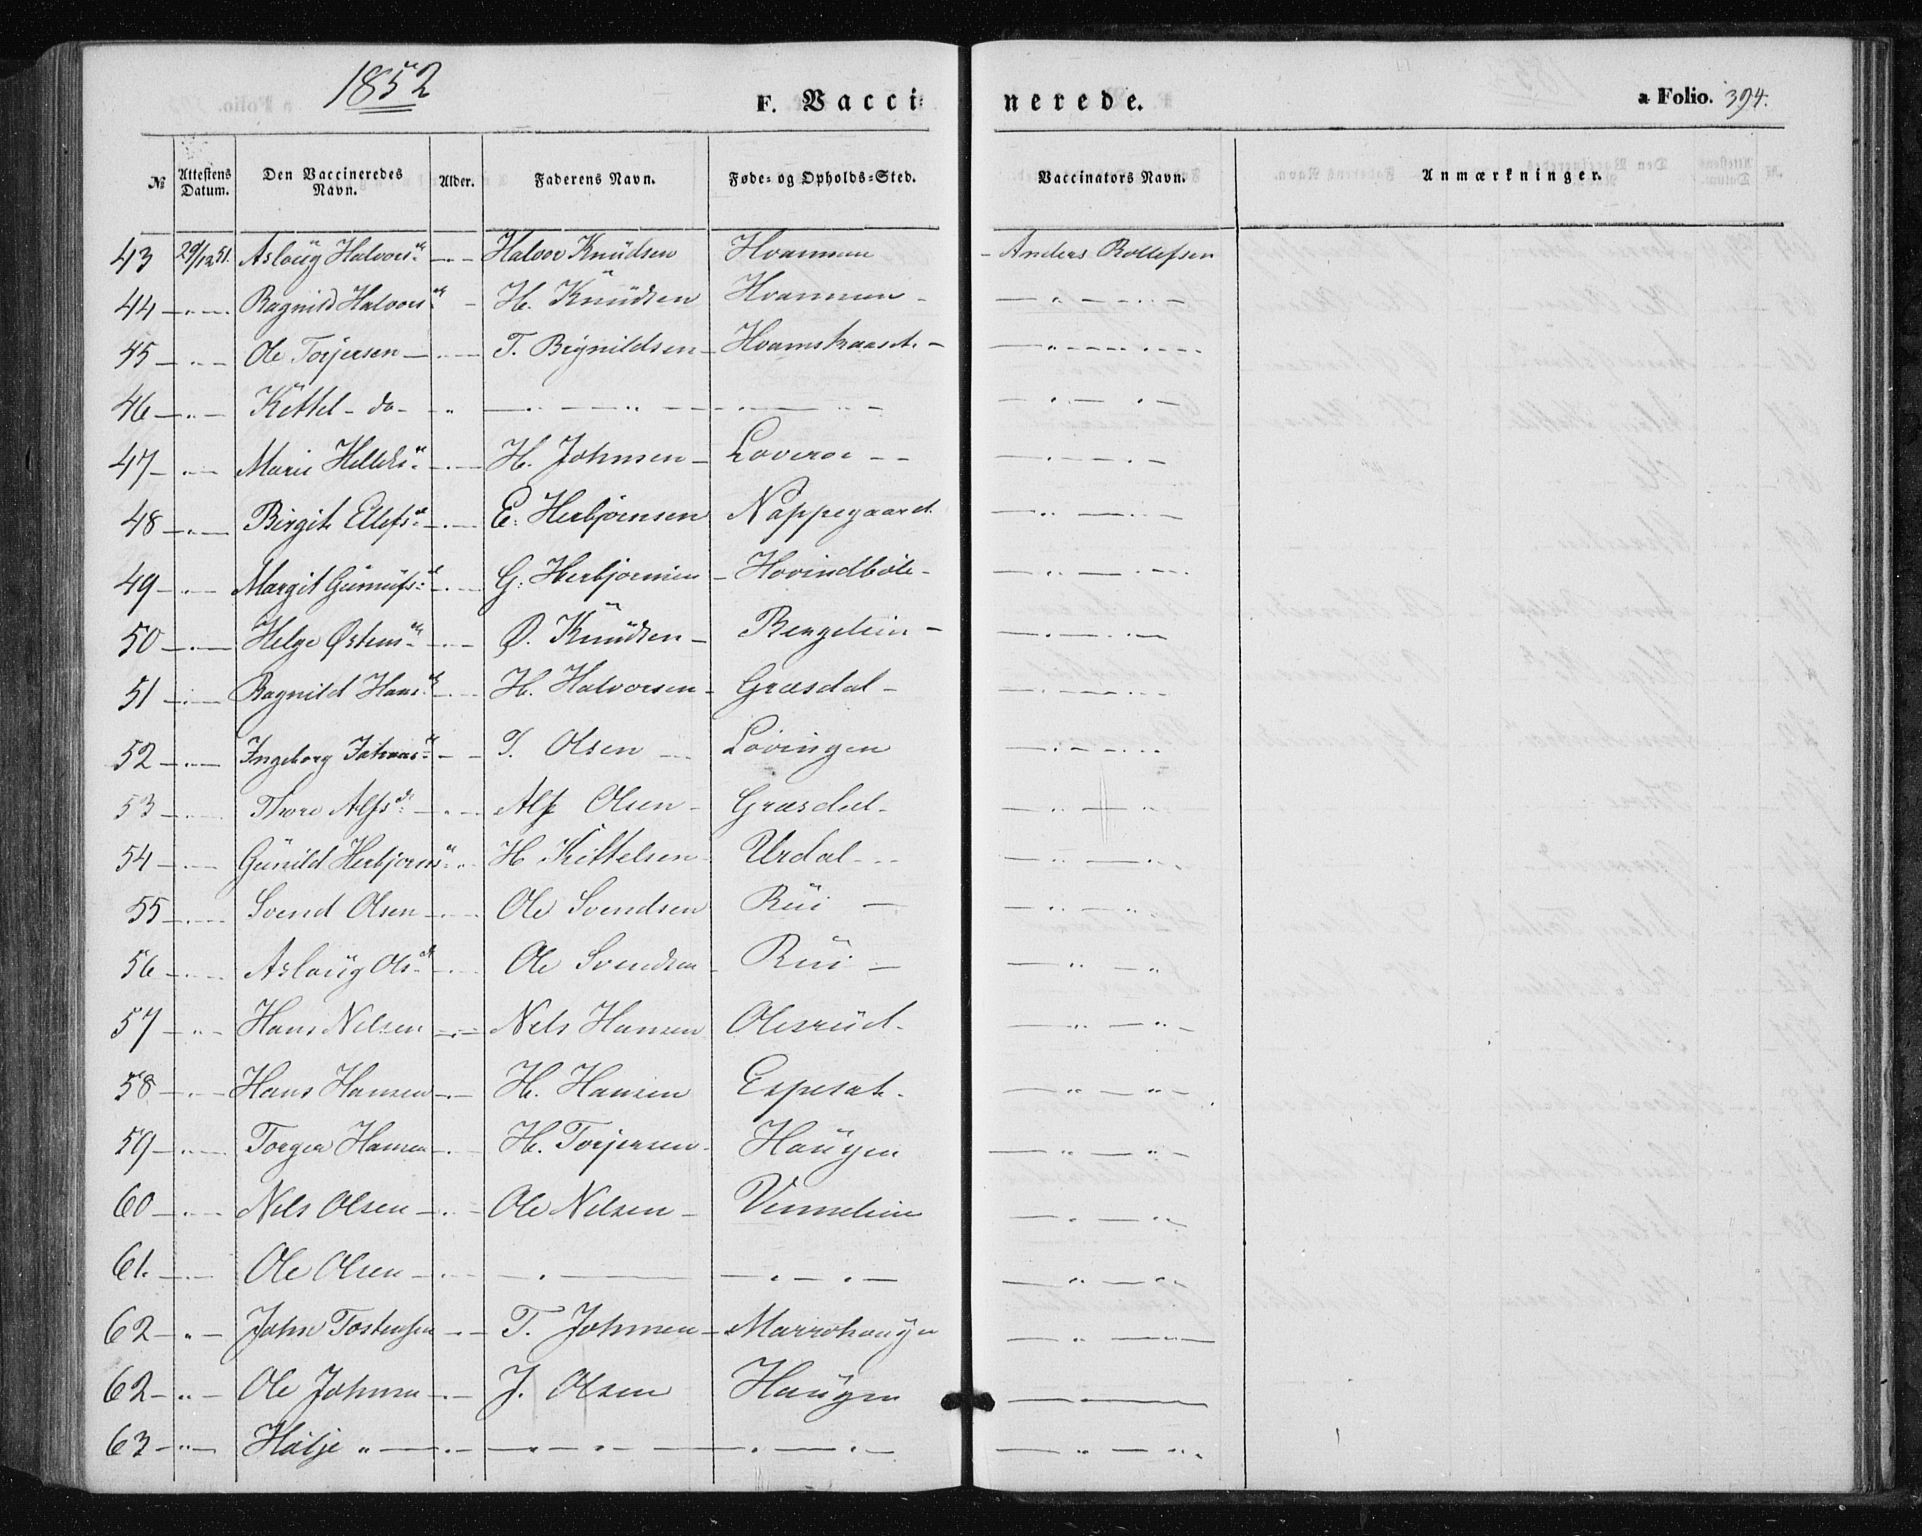 1852
F. Vaccinerede. a Folio. 394.
№ Attestens Datum. Den Vaccineredes Navn. Alder. Faderens Navn. Føde- og Opholds-Sted. Vaccinators Navn. Anmærkninger.
43 29/12 51. Aslaüg Halvorsdr — Halvor Knüdsen Hvammen - Anders Rollefsen
44 — " — Ragnild Halvorsdr - H. Knüdsen Hvammen - — " — " —
45 — " — Ole Torjersen — T. Brynildsen — Hvamshaaset — — " — " —
46 — " — Kittel - do - " — " — " — — " — — " — " —
47 — " — Marie Helleksdr — H. Johnsen — Loveroe - - — " — " —
48 — " — Birgit Ellefsdr — E. Herbjørnsen Nappegaard — " — " —
49 — " — Margit Gunnufsdr — G: Herbjørnsen — Hovindbøle - — " — " —
50 — " — Helge Østensdr — Ø. Knüdsen — Bergelein — — " — " —
51 — " — Ragnild Hansdr — H. Halvorsen - Græsdal - — " — " —
52 — " — Ingeborg Johnsdr — J. Olsen — Løvingen — " — " —
53 — " — Thore Alfsdr — Alf Olsen - Græsdal - — " — " —
54 — " — Günild Herbjørnsdr " H Kittelsen Urdal - - - — " — " —
55 — " — Svend Olsen — Ole Svendsen Rüi — — " — " —
56 — " — Aslaüg Olsdr — Ole Svendsen Rüi — — " — " —
57 — " — Hans Nilsen — Nels Hansen Olesrüd - — " — " —
58 — " — Hans Hansen — H. Hansen Espeset. — " — " —
59 — " — Torger Hansen — H. Torjersen - Haügen — " — " —
60 — " — Nels Olsen — Ole Nilsen — Vinnelien — " — " —
61. — " — Ole Olsen — — " — — " — " — — " — " —
62 — " — John Tostensen — T. Johnsen — Marrohaugen — " — " —
62 — " — Ole Johnsen — J. Olsen Haügen — " — " —
63 — " — Hölje " — — " — " — — " — " — — " — " —